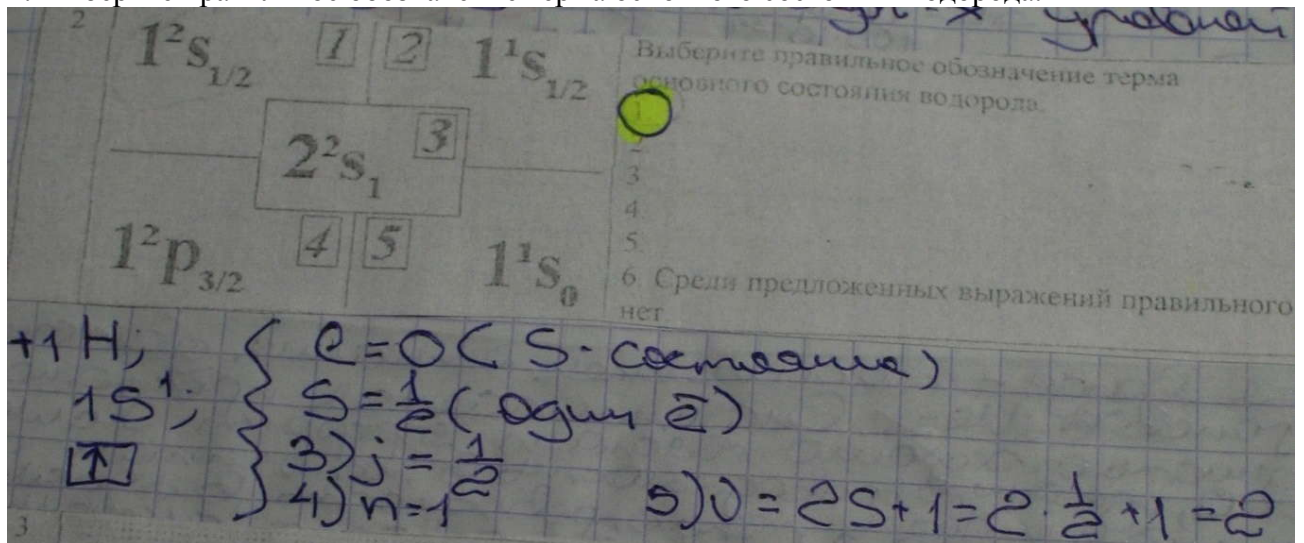 2
1²s₁/₂ 1 2 1¹s₁/₂
2²s₁ 3
1²p₃/₂ 4 5 1¹s₀
Выберите правильное обозначение терма
основного состояния водорода.
1
2
3
4.
5.
6. Среди предложенных выражений правильного
нет
+1 H; e=0 ( S- состояние)
1S¹; S=1/2 ( один ē)
↑ 3) j = 1/2
4) n=1 5) υ = 2S+1=2·1/2+1=2
3